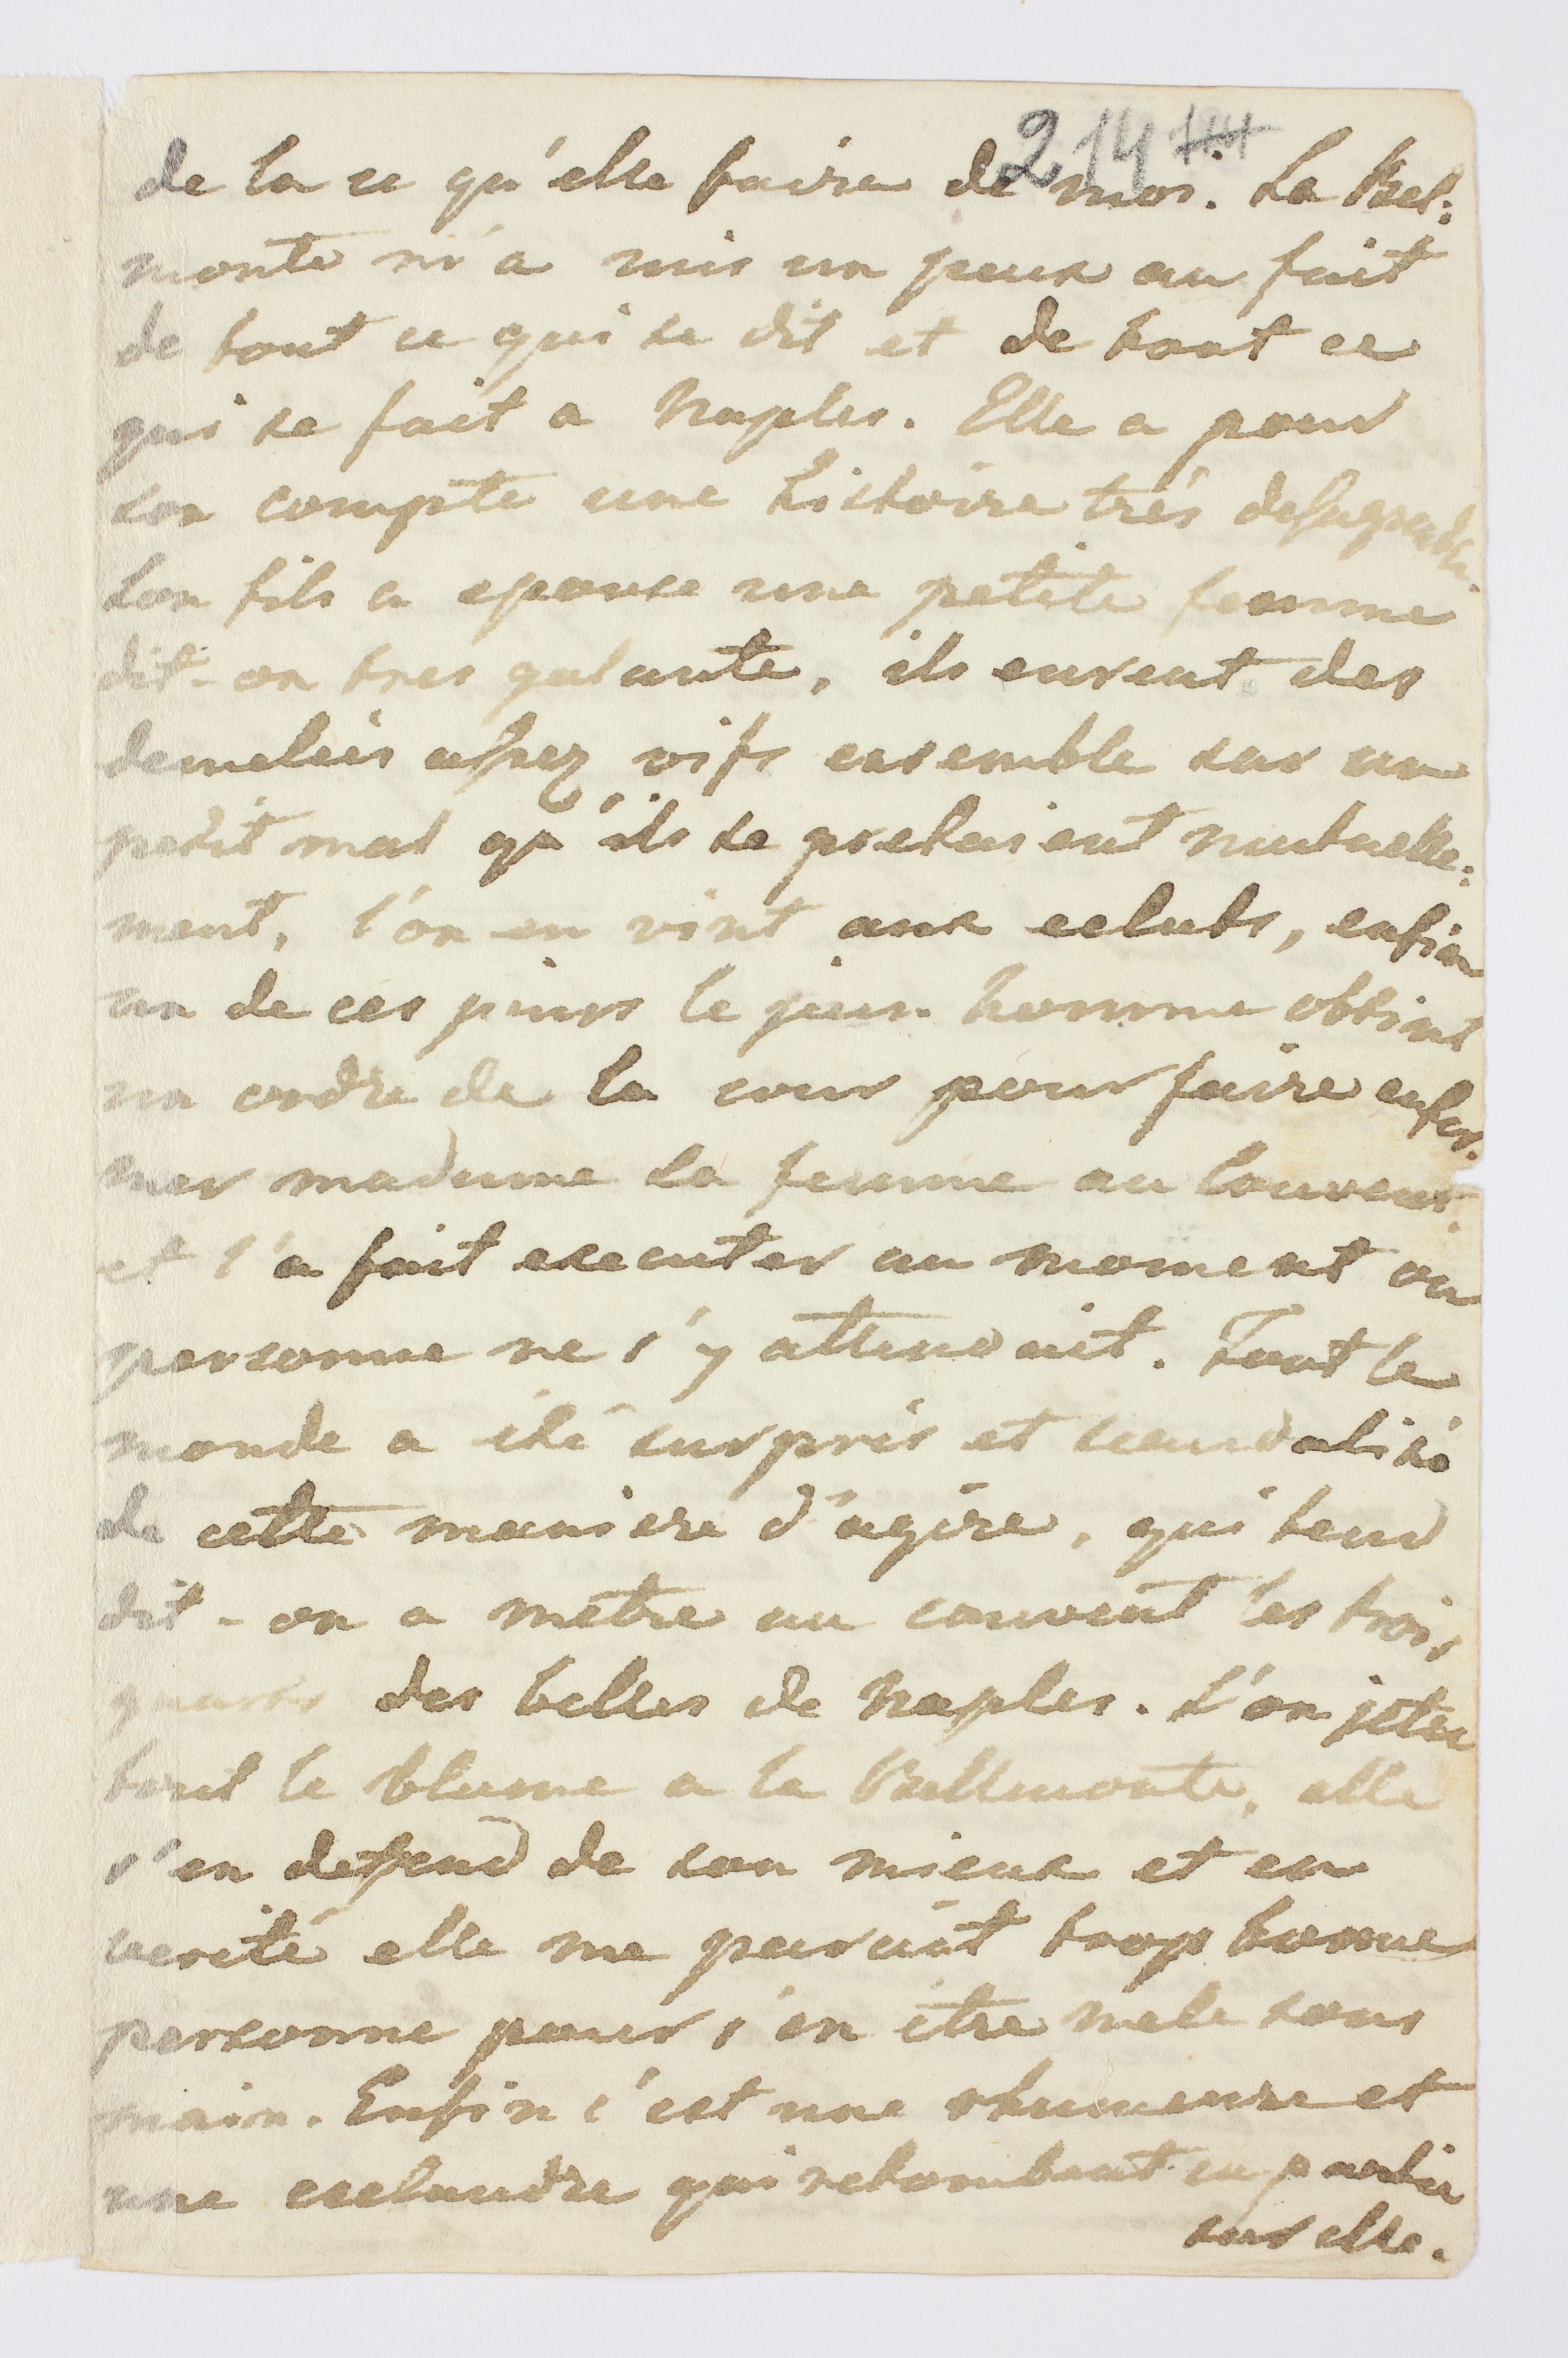 214
de la ce qu'elle faira de moi. La Bel:
monte m'a mis un peux au fait
de tout ce qui se dit et de tout ce
qui se fait a Naples. Elle a pour
son compte une histoire très desagreable.
Son fils a epouse une petite femme
dit-on tres galante, ils eurent des
demelèes assez vifs ensemble sur un
petit mal qu'ils se pretaient mutuelle:
ment, l'on en vint aux eclats, enfin
un de ces jours le jeun homme obtint
un ordre de la cour pour faire enfer:
mer madame sa femme au Couvent
et l'a fait executer au moment ou
personne ne s'y attendait. Tout le
monde a été surpris et scandalisé
de cette maniere d'agire, qui tend
dit-on a metre au couvent les trois
quarts des belles de Naples. L'on jete
tout le blame a la Bellmonte, elle
s'en defend de son mieux et en
verité elle me parait trop bonne
personne pour s'en être mele sous
main. Enfin c'est une rhumeure et
une esclandre qui retombent en partie
sur elle.